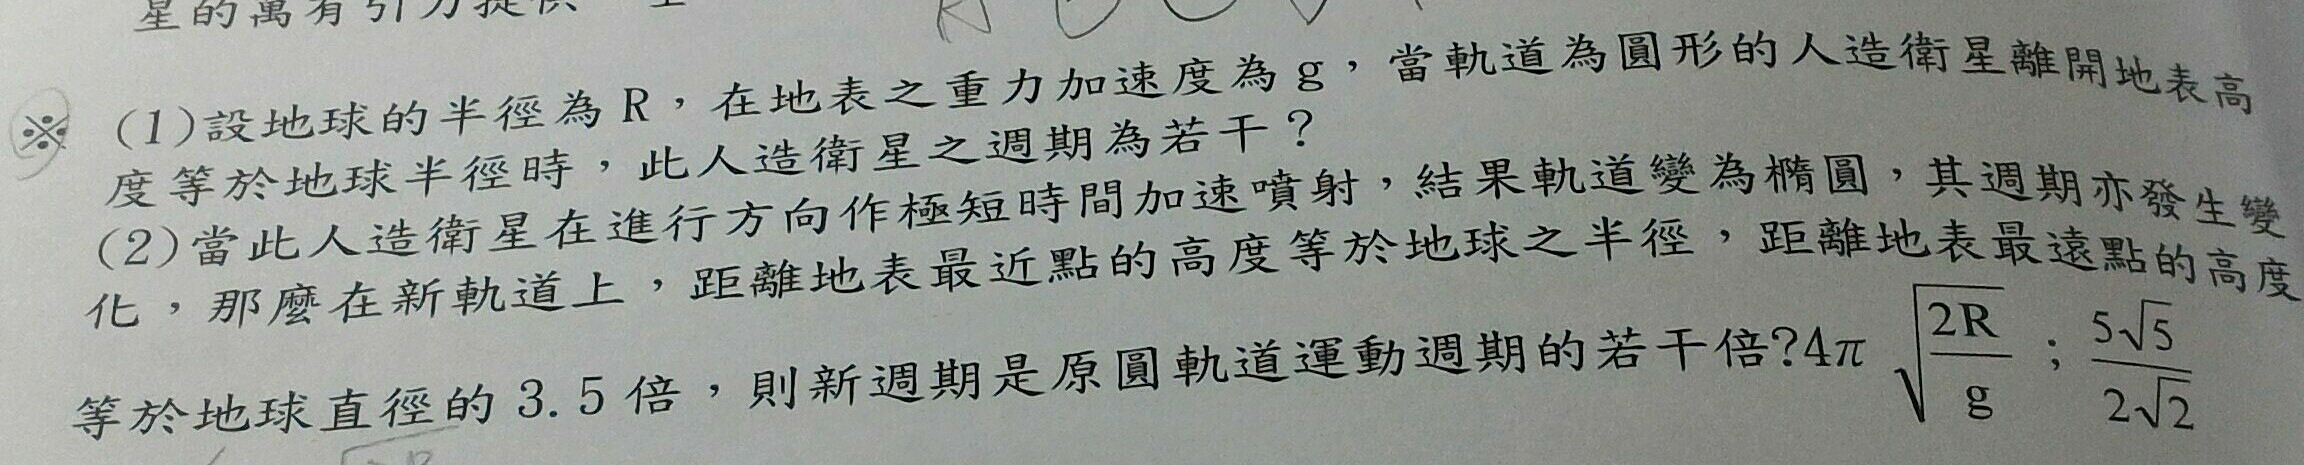 星的萬有引力提供
※ (1)設地球的半徑為 R，在地表之重力加速度為 g，當軌道為圓形的人造衛星離開地表高
度等於地球半徑時，此人造衛星之週期為若干？
(2)當此人造衛星在進行方向作極短時間加速噴射，結果軌道變為橢圓，其週期亦發生變
化，那麼在新軌道上，距離地表最近點的高度等於地球之半徑，距離地表最遠點的高度
等於地球直徑的 3.5 倍，則新週期是原圓軌道運動週期的若干倍?4π√(2R/g)；5√5/2√2